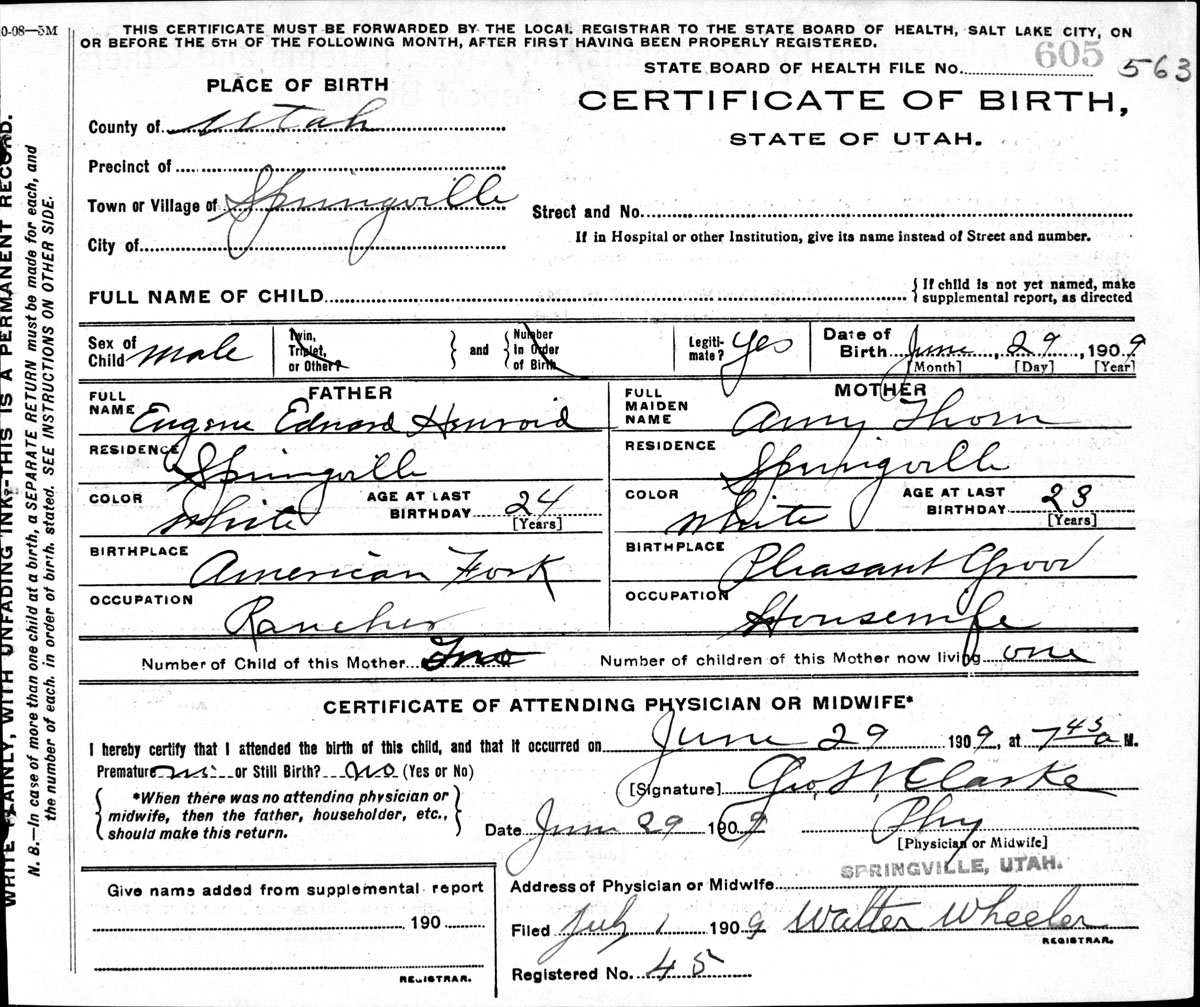 0-08—5M
THIS CERTIFICATE MUST BE FORWARDED BY THE LOCAL REGISTRAR TO THE STATE BOARD OF HEALTH, SALT LAKE CITY, ON
OR BEFORE THE 5TH OF THE FOLLOWING MONTH, AFTER FIRST HAVING BEEN PROPERLY REGISTERED.
STATE BOARD OF HEALTH FILE No. 605 563
PLACE OF BIRTH
CERTIFICATE OF BIRTH,
STATE OF UTAH.
County of Utah
Precinct of
Town or Village of Springville
Street and No.
City of
If in Hospital or other Institution, give its name instead of Street and number.
FULL NAME OF CHILD
{If child is not yet named, make
supplemental report, as directed
Sex of Child Male
Twin, Triplet, or Other? } and { Number In Order of Birth
Legitimate? Yes
Date of Birth June, 29, 1909
[Month] [Day] [Year]
FATHER
FULL NAME Eugene Edward Henroid
RESIDENCE Springville
COLOR White AGE AT LAST BIRTHDAY 24 [Years]
BIRTHPLACE American Fork
OCCUPATION Rancher
MOTHER
FULL MAIDEN NAME Amy Thorn
RESIDENCE Springville
COLOR White AGE AT LAST BIRTHDAY 23 [Years]
BIRTHPLACE Pleasant Grove
OCCUPATION Housewife
Number of Child of this Mother Two Number of children of this Mother now living one
CERTIFICATE OF ATTENDING PHYSICIAN OR MIDWIFE*
I hereby certify that I attended the birth of this child, and that it occurred on June 29 1909, at 7 45 a M.
Premature no or Still Birth? no (Yes or No)
{ *When there was no attending physician or
midwife, then the father, householder, etc.,
should make this return. }
[Signature] Geo. Clarke
Date June 29 1909 Phy
[Physician or Midwife]
SPRINGVILLE, UTAH.
Address of Physician or Midwife
Give name added from supplemental report
190
REGISTRAR.
Filed July 1 1909 Walter Wheeler
REGISTRAR.
Registered No. 45
WRITE PLAINLY, WITH UNFADING INK—THIS IS A PERMANENT RECORD.
N. B.—In case of more than one child at a birth, a SEPARATE RETURN must be made for each, and
the number of each, in order of birth, stated. SEE INSTRUCTIONS ON OTHER SIDE.